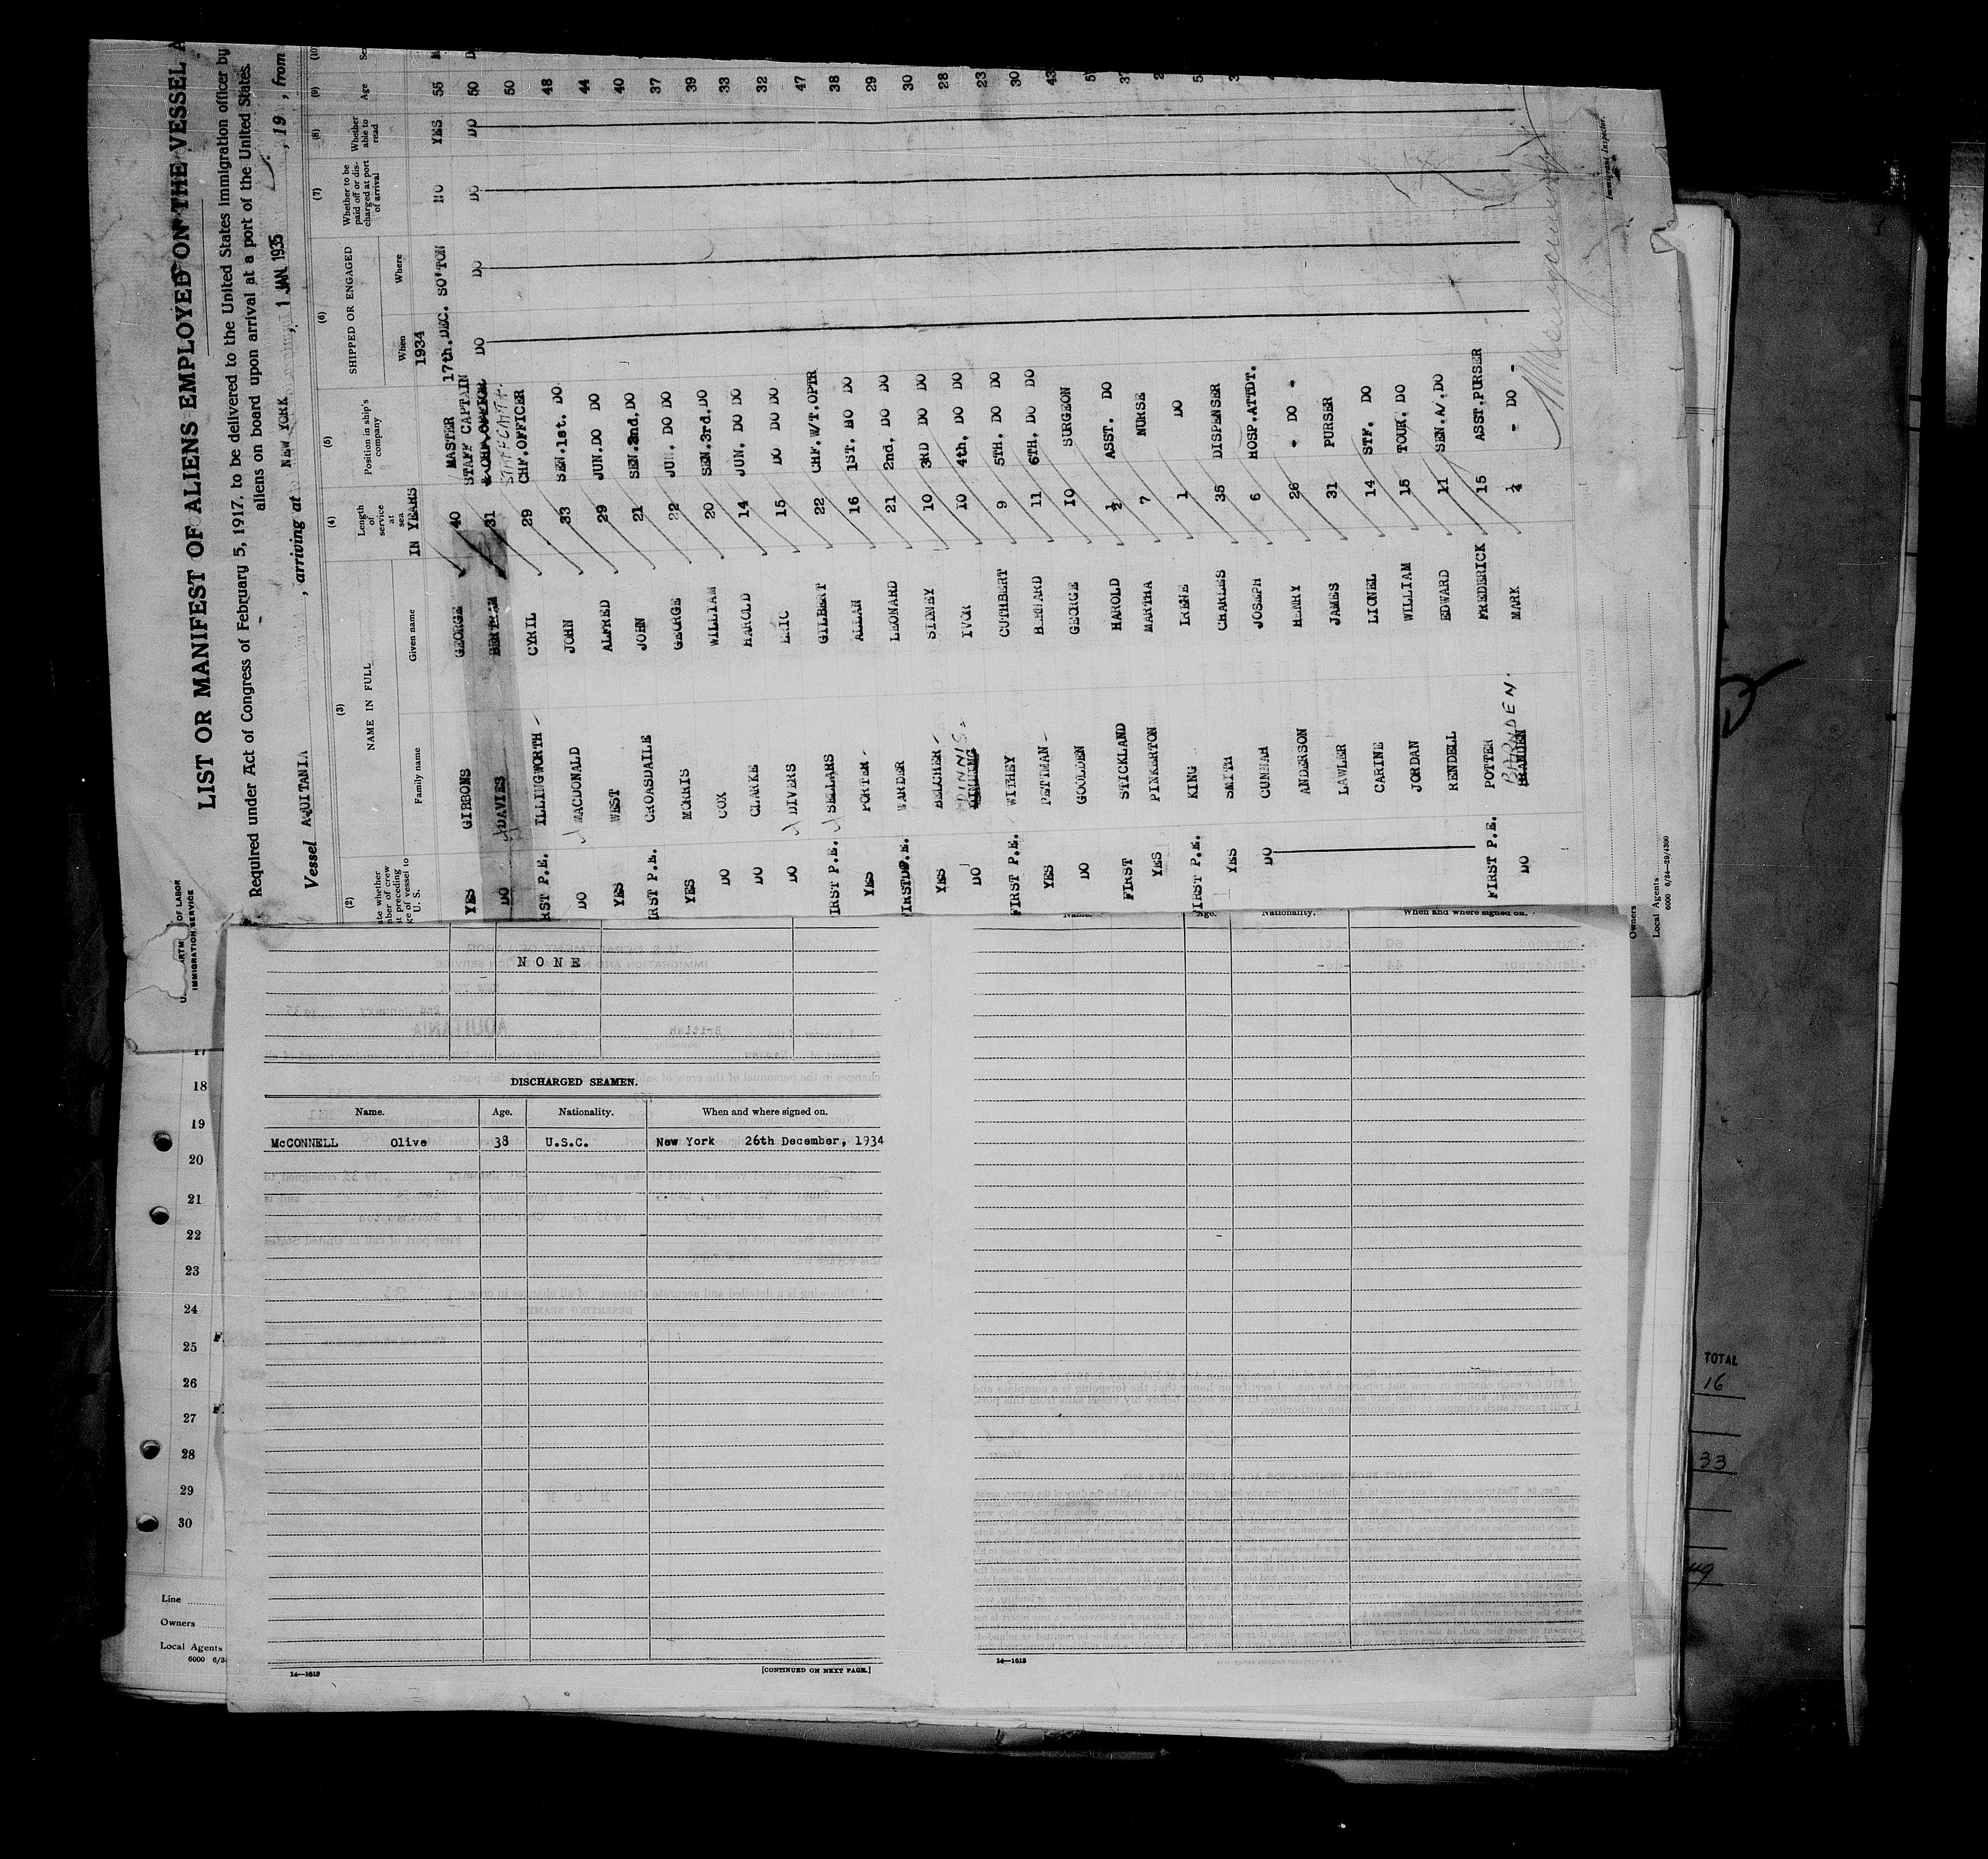 LIST OR MANIFEST OF ALIENS EMPLOYED ON THE VESSEL A
Required under Act of Congress of February 5, 1917, to be delivered to the United States immigration officer by
aliens on board upon arrival at a port of the United States.
Vessel AQUITANIA , arriving at NEW YORK , 1 JAN. 1935 , 19 , from
U. ARTM OF LABOR
IMMIGRATION SERVICE
(2) (3) (4) (5) (6) (7) (8) (9) (10)
ate whether
mber of crew
t preceding
ge of vessel to
U. S.
NAME IN FULL
Family name
Given name
Length
of
service
at
sea
IN YEARS
Position in ship's
company
SHIPPED OR ENGAGED
When
1934
Where
Whether to be
paid off or dis-
charged at port
of arrival
Whether
able to
read
Age
Sex
YES GIBBONS GEORGE 40 MASTER 17th.DEC. SO'TON NO YES 55 M
DO DAVIES BERTRAM 31 STAFF CAPTAIN & CHF.OFFICER STAFF CAPT. DO DO DO DO 50 D
RST P.E. ILLINGWORTH CYRIL 29 CHF.OFFICER 50
DO MACDONALD JOHN 33 SEN.1st. DO 48
YES WEST ALFRED 29 JUN.DO DO 44
RST P.E. CROASDAILE JOHN 21 SEN.2nd.DO 40
YES MORRIS GEORGE 22 JUN. DO DO 37
DO COX WILLIAM 20 SEN.3rd.DO 39
DO CLARKE HAROLD 14 JUN. DO DO 33
DO DIVERS ERIC 15 DO DO DO 32
IRST P.E. SELLARS GILBERT 22 CHF.W/T.OPTR 47
YES PORTER ALLAN 16 1ST. DO DO 38
FIRST P.E. WARDER LEONARD 21 2nd. DO DO 29
YES BELCHER SIDNEY 10 3RD DO DO 30
DO IVOR 10 4th. DO DO 28
FIRST P.E. WITHEY CUTHBERT 9 5TH. DO DO 23
YES PETTMAN BERNARD 11 6TH. DO DO 30
DO GOOLDEN GEORGE 10 SURGEON 43
FIRST STICKLAND HAROLD ½ ASST. DO
YES PINKERTON MARTHA 7 NURSE
FIRST P.E. KING IRENE 1 DO
YES SMITH CHARLES 35 DISPENSER
DO CUNNAH JOSEPH 6 HOSP.ATTDT.
ANDERSON HENRY 26 - DO -
LAWLER JAMES 31 PURSER
CARINE LIONEL 14 STF. DO
JORDAN WILLIAM 15 TOUR. DO
RENDELL EDWARD 11 SEN.A/.DO
FIRST P.E. POTTER FREDERICK 15 ASST.PURSER
DO BARNDEN. MARK - DO -
Immigrant Inspector.
Owners
Local Agents
6000 6/34-29/4300
NONE
DISCHARGED SEAMEN.
Name. Age. Nationality. When and where signed on.
McCONNELL Olive 38 U.S.C. New York 26th December, 1934
14—1613
[CONTINUED ON NEXT PAGE.]
Name. Age. Nationality. When and where signed on.
14—1613
17
18
19
20
21
22
23
24
25
26
27
28
29
30
Line
Owners
Local Agents
6000 6/3
TOTAL
16
33